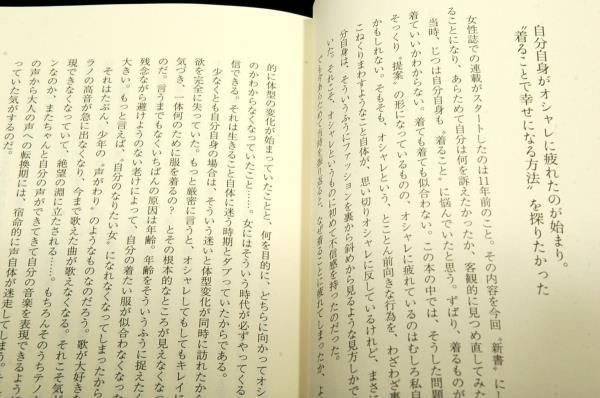 自分自身がオシャレに疲れたのが始まり。
〝着ることで幸せになる方法〟を探りたかった
女性誌での連載がスタートしたのは11年前のこと。その内容を今回〝新書〟に
ることになり、あらためて自分は何を訴えたかったか、客観的に見つめ直してみた
当時、じつは自分自身、〝着ること〟に悩んでいたと思う。ずばり、着るものが
着ていいかわからない。着ても着ても似合わない。この本の中では、そうした問題
そっくり〝提案〟の形になっているものの、オシャレに疲れているのはむしろ私自
かもしれない。そもそも、オシャレという、とことん前向きな行為を、わざわざ裏
こねくりまわすようなこと自体が、思い切りオシャレに反しているけれど、まさ
分自身が、そういうふうにファッションを裏から斜めから見るような見方しかで
いた。それこそ、オシャレというものに初めて不信感を持ったのだった。
なぜ着ることに疲れてしまったか、よ
的に体型の変化が始まっていたことと、何を目的に、どちらに向かってオシ
のかわからなくなっていたこと……。女にはそういう時代が必ずやってくる
信できる。それは生きること自体に迷う時期とダブっていたからである。
少なくとも自分自身の場合は、そういう迷いと体型変化が同時に訪れたから
欲を完全に失っていた。もっと厳密に言うと、オシャレしてもしてもキレイに
気づき、一体何のために服を着るの？　とその根本的なところが見えなくなっ
のだ。言うまでもなくいちばんの原因は年齢。年齢をそういうふうに捉えたく
残念ながら避けようのない老けによって、自分の着たい服が似合わなくなった
大きい。もっと言えば、〝自分のなりたい女〟になれなくなってしまったから
それはたぶん、少年の〝声がわり〟のようなものなのだろう。歌が大好きな
ラノの高音が急に出なくなり、今まで歌えた曲が歌えなくなる。それこそ気が
現できなくなっていて、絶望の淵に立たされる……。もちろんそのうちテノ
ンなのか、またちゃんと自分の声ができてきて自分の音楽を表現できるよう
の声から大人の声への転換期には、宿命的に声自体が迷走してしまう。そ
っていた気がするのだ。